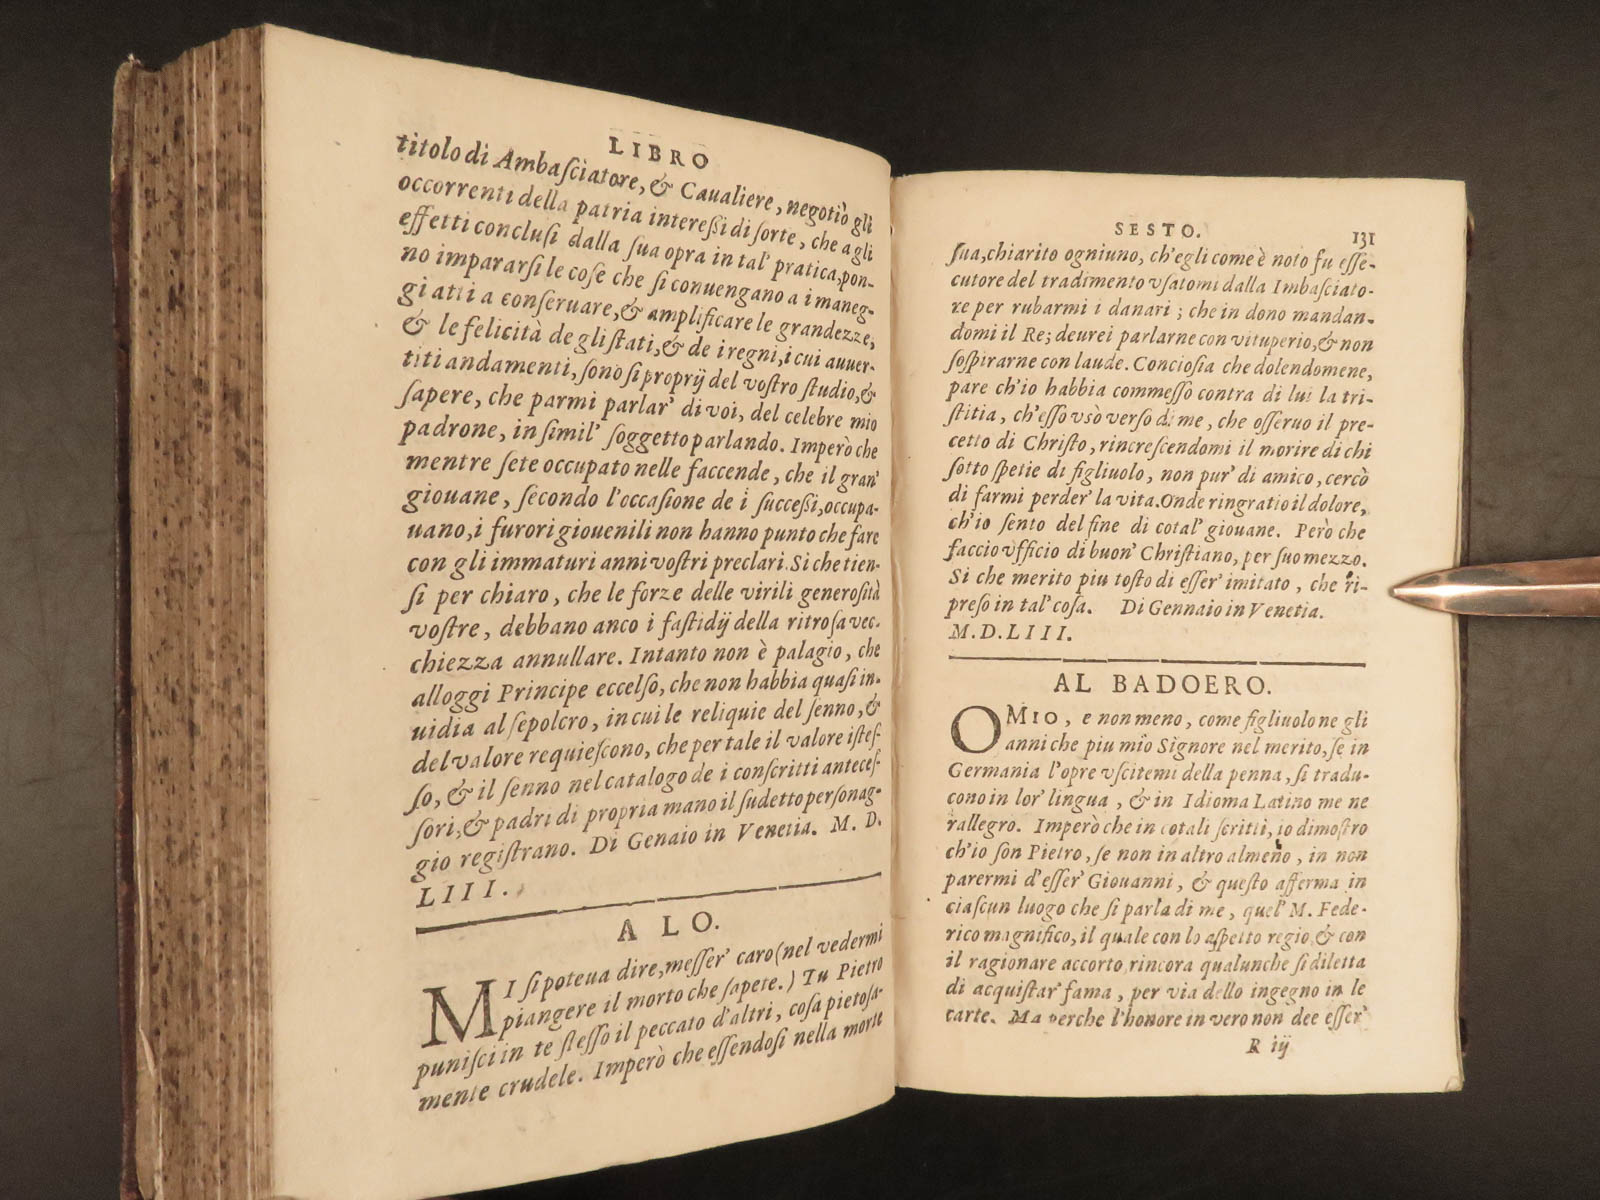 LIBRO
titolo di Ambaſciatore, & Caualiere, negotiò gli
occorrenti della patria intereßi di ſorte, che a gli
effetti concluſi dalla ſua opra in tal' pratica, pon-
no impararſi le coſe che ſi conuengano a i maneg-
gi atti a conſeruare, & amplificare le grandezze,
& le felicità de gli ſtati, & de i regni, i cui auuer-
titi andamenti, ſono ſi proprij del voſtro ſtudio, &
ſapere, che parmi parlar' di voi, del celebre mio
padrone, in ſimil' ſoggetto parlando. Imperò che
mentre ſete occupato nelle faccende, che il gran'
giouane, ſecondo l'occaſione de i ſucceßi, occupa-
uano, i furori giouenili non hanno punto che fare
con gli immaturi anni voſtri preclari. Si che tien-
ſi per chiaro, che le forze delle virili generoſità
voſtre, debbano anco i faſtidij della ritroſa vec-
chiezza annullare. Intanto non è palagio, che
alloggi Principe eccelſo, che non habbia quaſi in-
uidia al ſepolcro, in cui le reliquie del ſenno, &
del valore requieſcono, che per tale il valore iſteſ-
ſo, & il ſenno nel catalogo de i conſcritti anteceſ-
ſori, & padri di propria mano il ſudetto perſonag-
gio regiſtrano. Di Genaio in Venetia. M. D.
LIII.
A LO.
MI ſi poteua dire, meſſer' caro (nel vedermi
piangere il morto che ſapete.) Tu Pietro
puniſci in te ſteſſo il peccato d'altri, coſa pietoſa-
mente crudele. Imperò che eſſendoſi nella morte
SESTO. 131
ſua, chiarito ogniuno, ch'egli come è noto fu eſſe-
cutore del tradimento vſatomi dalla Imbaſciato-
re per rubarmi i danari; che in dono mandan-
domi il Re; deurei parlarne con vituperio, & non
ſoſpirarne con laude. Concioſia che dolendomene,
pare ch'io habbia commeſſo contra di lui la tri-
ſtitia, ch'eſſo vsò verſo di me, che oſſeruo il pre-
cetto di Chriſto, rincreſcendomi il morire di chi
ſotto ſpetie di figliuolo, non pur' di amico, cercò
di farmi perder' la vita. Onde ringratio il dolore,
ch'io ſento del fine di cotal' giouane. Però che
faccio vfficio di buon' Chriſtiano, per ſuo mezzo.
Si che merito piu toſto di eſſer' imitato, che ri-
preſo in tal' coſa. Di Gennaio in Venetia.
M. D. LIII.
AL BADOERO.
O MIO, e non meno, come figliuolo ne gli
anni che piu mio Signore nel merito, ſe in
Germania l'opre vſcitemi della penna, ſi tradu-
cono in lor' lingua, & in Idioma Latino me ne
rallegro. Imperò che in cotali ſcritti, io dimoſtro
ch'io ſon Pietro, ſe non in altro almeno, in non
parermi d'eſſer' Giouanni, & queſto afferma in
ciaſcun luogo che ſi parla di me, quel' M. Fede-
rico magnifico, il quale con lo aſpetto regio, & con
il ragionare accorto, rincora qualunche ſi diletta
di acquiſtar' fama, per via dello ingegno in le
carte. Ma perche l'honore in vero non dee eſſer'
R iij